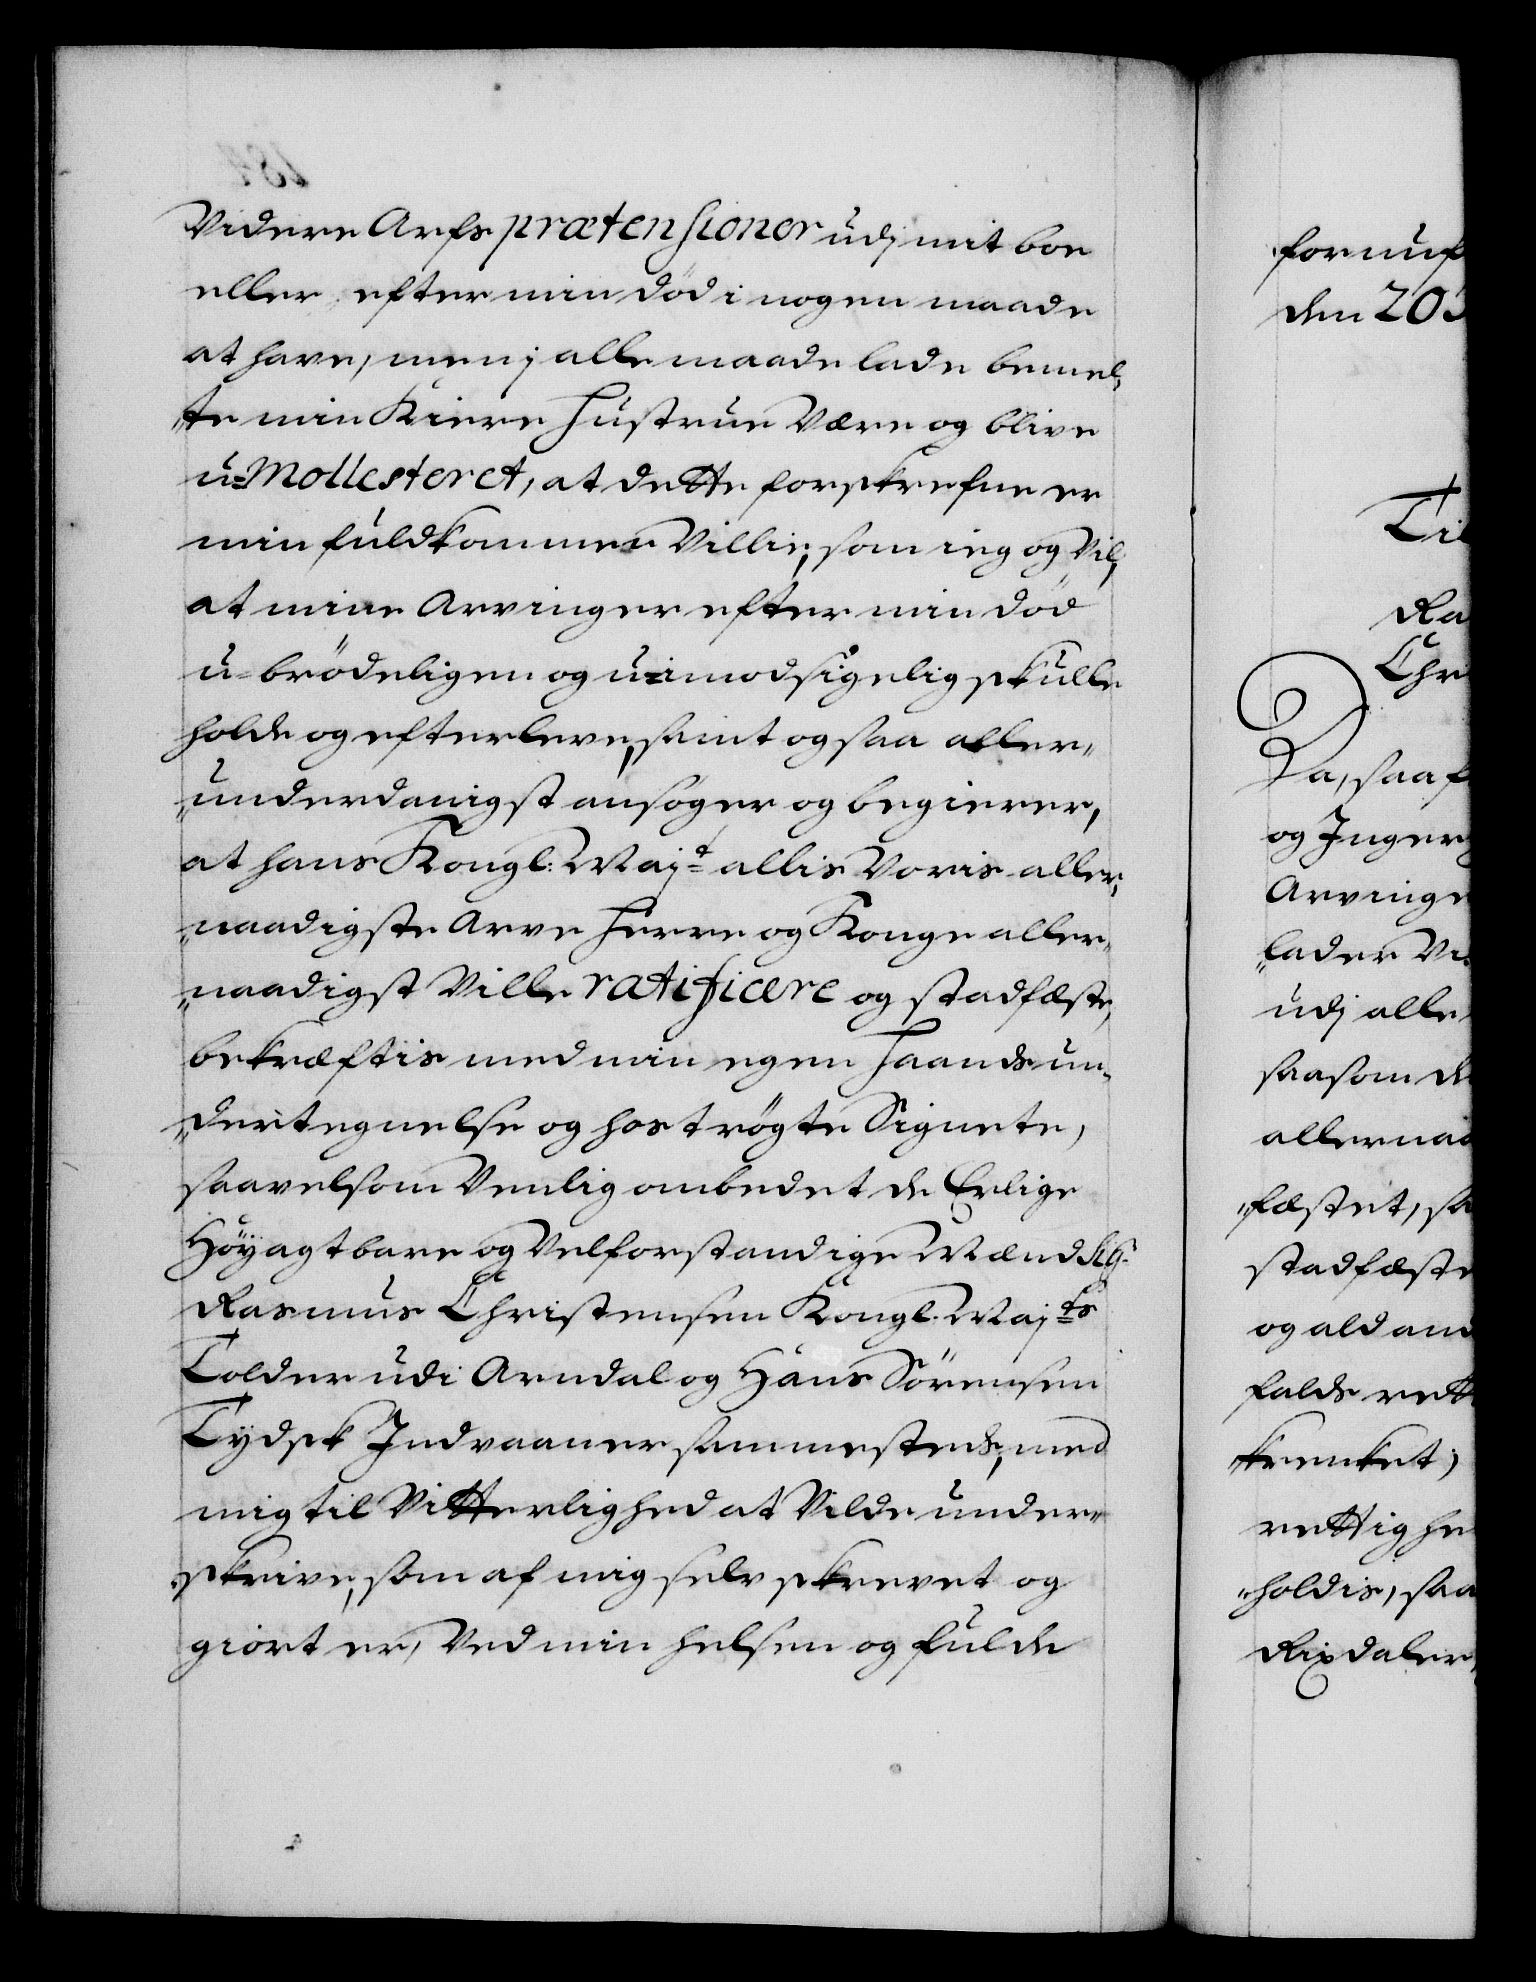 Videre Arfs prætensioner udj mit boe
eller efter min död i nogen maade
at have, men j alle maade lade bemel,
„te min Kiere Hustrue Være og blive
u=Mollesteret, at dette forskrefne er
min fuldkommen Villie, som ieg og Vil,
at mine Arvinger efter min död
u=brödeligen og u=imodsigelig skulle
holde og efterleve, samt og saa aller„
„underdanigst ansöger og begierer,
at hans Kongl: Majt allis Voris aller„
„naadigste Arve Herre og Konge aller„
„naadigst Ville ratificere og stadfæste,
bekræftis med min egen Haands un„
„dertegnelse og hoströgte Signete,
saavelsom Venlig ombedet de Erlige
Höyagtbare og Velforstandige Mænd Sigr
Rasmus Christensen Kongl. Majts
Tolder udi Arndal og Hans Sörensen
Tydsk Indvaaner sammesteds, med
mig til Vitterlighed at Vilde under„
„skrive, som af mig selv skrevet og
giort er, Ved min helsen og fulde
fornuf
den 205
Til
Ra
Chr
Da, saa f
og Inger
Arvinge
„lader Vi
udj alle
saasom de
allernaa
„fæstet, sa
stadfæste
og ald and
falds rett
„krenket;
rettighe
„holdis, saa
Rixdaler